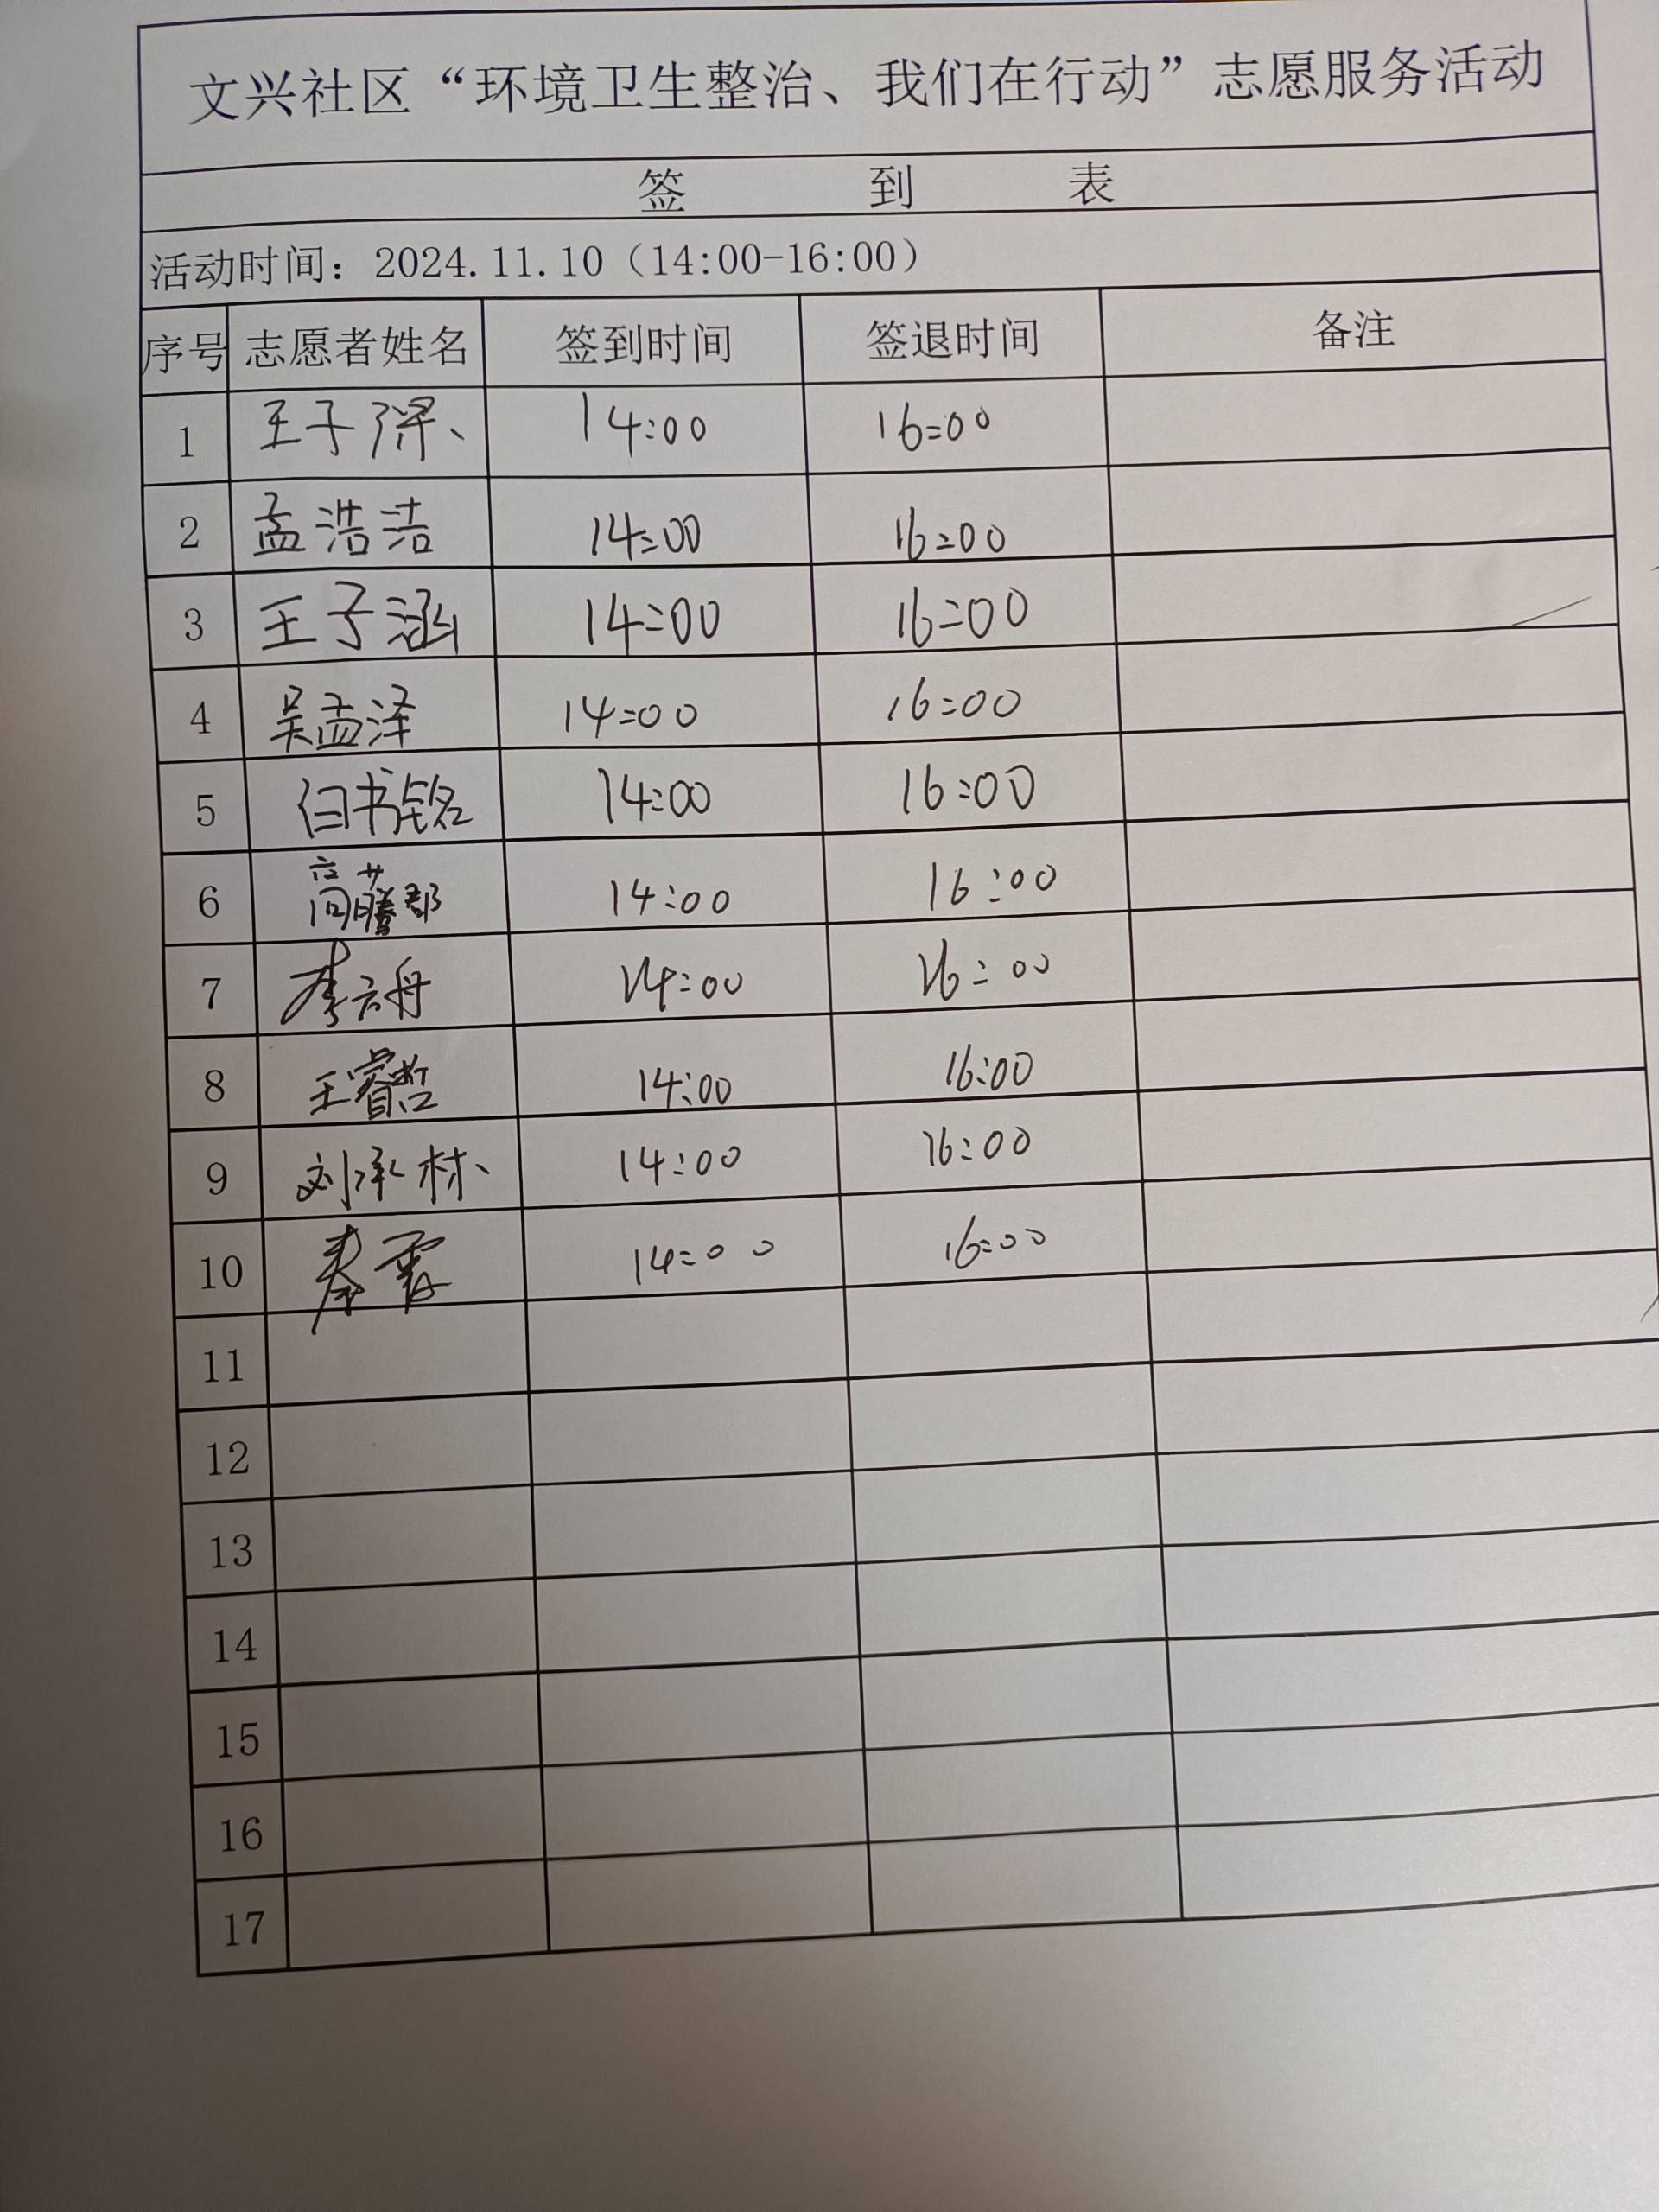 文兴社区“环境卫生整治、我们在行动”志愿服务活动
签 到 表
活动时间：2024.11.10（14:00-16:00）
序号 志愿者姓名 签到时间 签退时间 备注
1 王子 14:00 16:00
2 孟浩洁 14:00 16:00
3 王子涵 14:00 16:00
4 吴孟泽 14:00 16:00
5 白书铭 14:00 16:00
6 高 14:00 16:00
7 李 舟 14:00 16:00
8 王睿哲 14:00 16:00
9 刘承林 14:00 16:00
10 秦霄 14:00 16:00
11
12
13
14
15
16
17